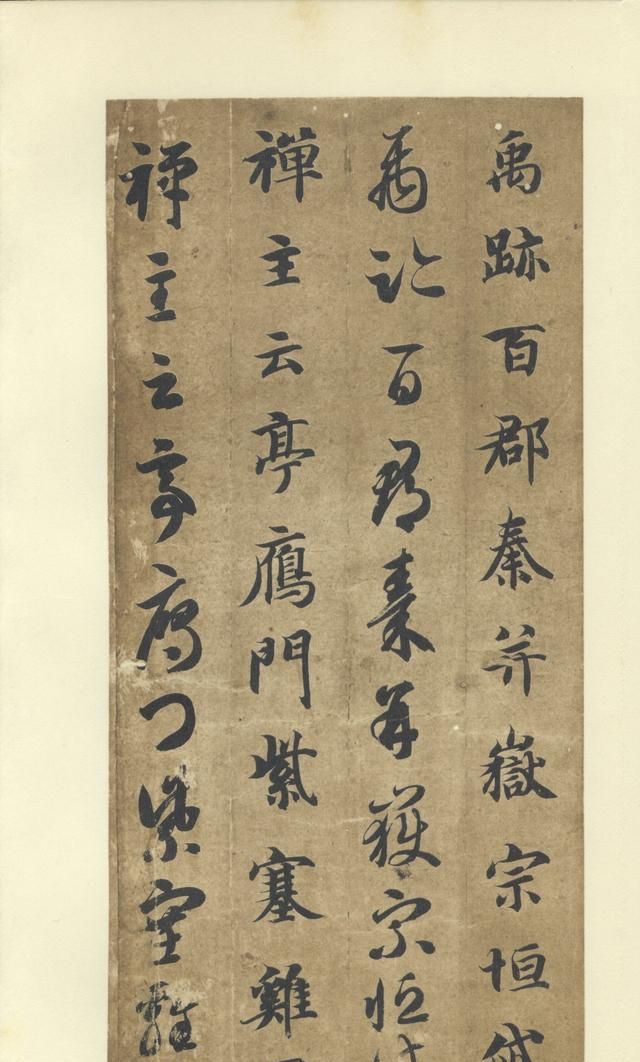 禹跡百郡秦并嶽宗恒岱
禹跡百郡秦并嶽宗恒
禪主云亭鴈門紫塞雞
禪主云亭鴈門紫塞雞